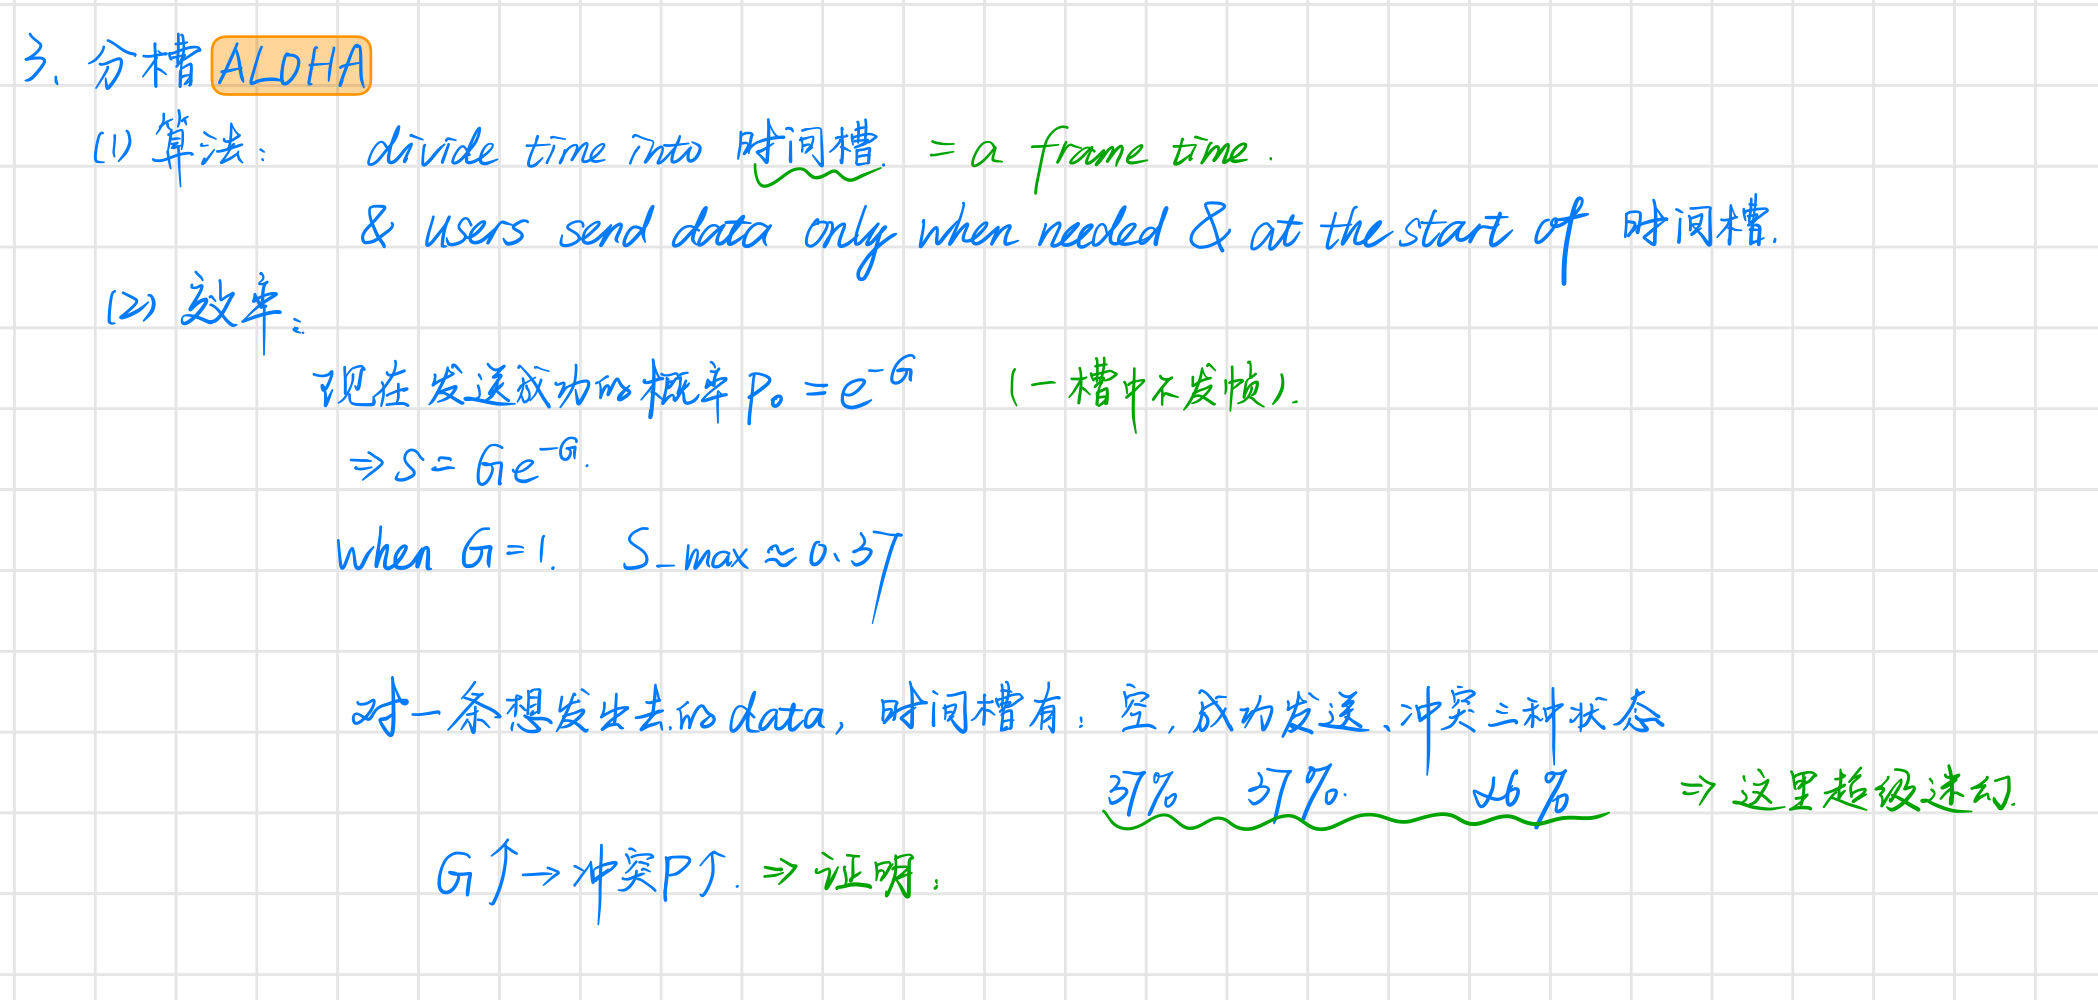 3、分槽 ALOHA
(1) 算法: divide time into 时间槽. = a frame time.
& users send data only when needed & at the start of 时间槽.
(2) 效率:
现在发送成功的概率 P₀ = e^-G (一槽中不发帧).
⇒ S = Ge^-G.
when G=1. S_max ≈ 0.37
对一条想发出去的data, 时间槽有: 空, 成功发送、冲突三种状态
37% 37%. 26% ⇒ 这里超级迷幻.
G↑→冲突P↑. ⇒ 证明: